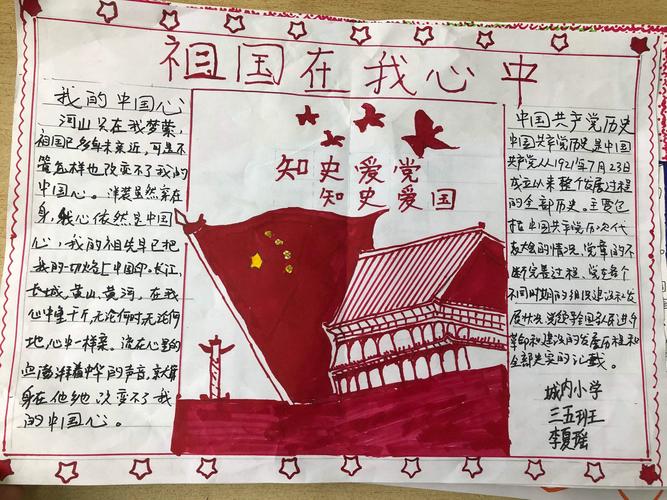 祖国在我心中
我的中国心
河山只在我梦萦,
祖国已多年未亲近,可是不
管怎样也改变不了我的
中国心。洋装虽然穿在
身,我心依然是中国
心,我的祖先早已把
我的一切烙上中国印。长江,
长城,黄山,黄河,在我
心中重千斤,无论何时,无论何
地,心中一样亲。流在心里的
血,澎湃着中华的声音,就算
身在他乡也改变不了我
的中国心。
知史爱党
知史爱国
中国共产党历史
中国共产党历史是中国
共产党从1921年7月23日
成立以来整个发展过程
的全部历史。主要包
括中国共产党历次代
表大会的情况、党章的不
断完善过程、党在每个
不同时期的组织建设和发
展状况、党领导全国人民进行
革命和建设的发展历程和
全部史实的记载。
城内小学
三五班
李夏瑶